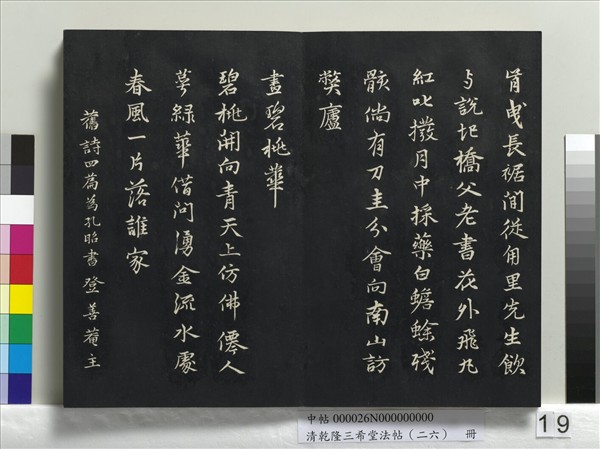 肯曳長裾间從甪里先生飲
与說圯橋父老書花外飛丸
紅叱撥月中採藥白蟾蜍殘
骸倘有刀圭分會向南山訪
獘廬
畫碧桃華
碧桃開向青天上仿佛僊人
萼綠華借问湧金流水處
春風一片落誰家
舊詩四篇為孔昭書登善菴主
中帖 000026N000000000
清乾隆三希堂法帖（二六） 冊
19